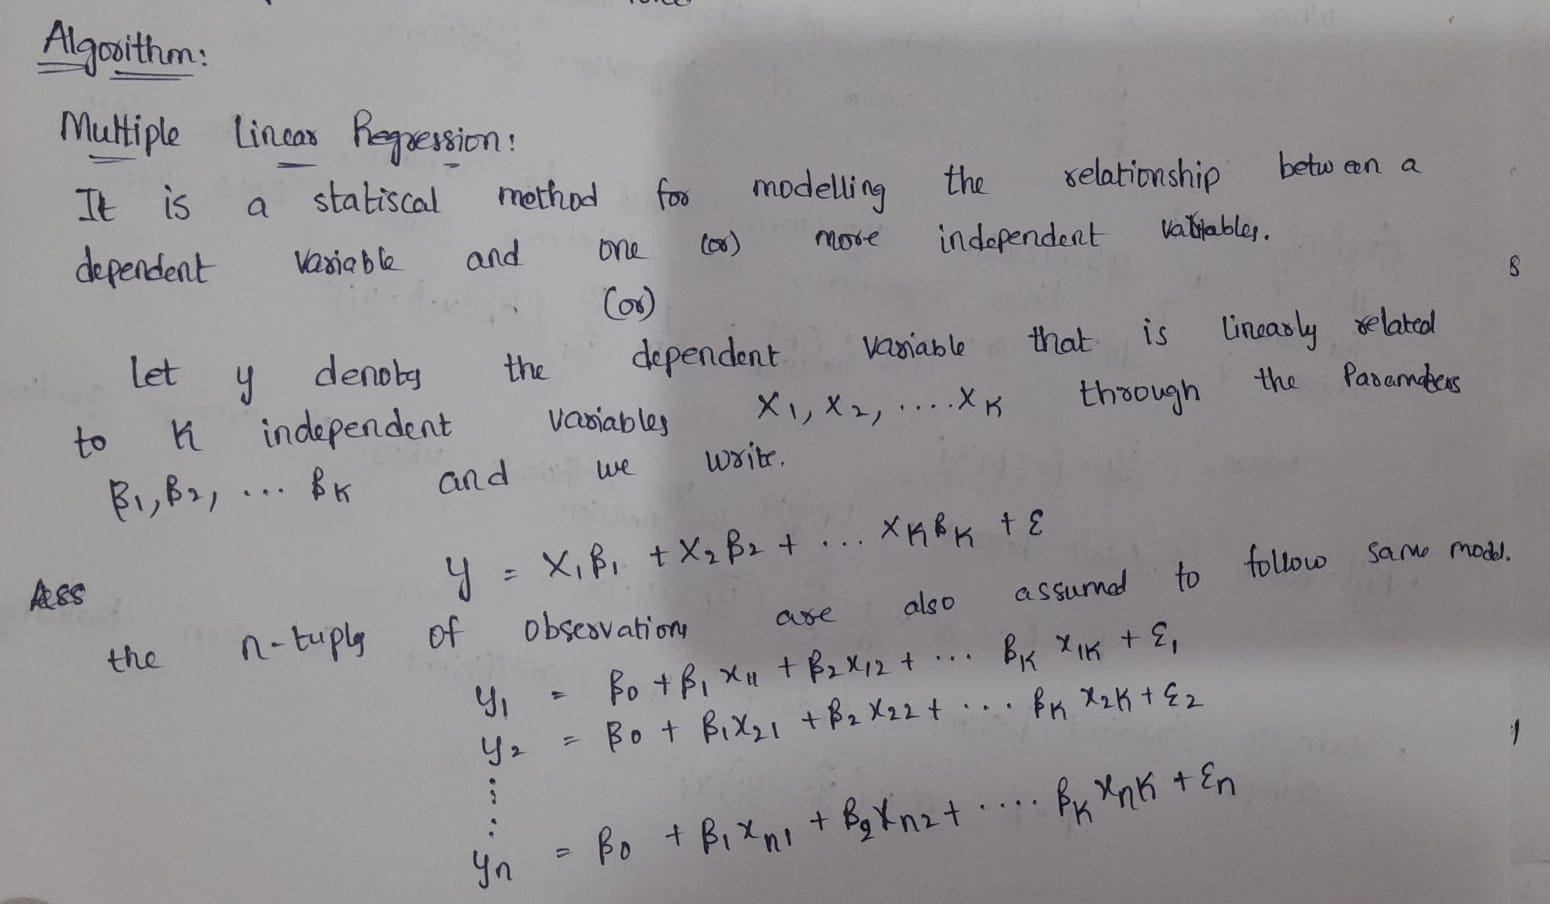 Algorithm:
Multiple Linear Regression:
It is a statiscal method for modelling the relationship between a
dependent variable and one (or) more independent variables.
(or)
Let y denotes the dependent variable that is linearly related
to K independent variables X1, X2, ....XK through the Parameters
β1, β2, ... βK and we write.
y = X1β1 + X2β2 + ... XKβK + ε
Ass
the n-tuples of observations are also assumed to follow same model.
y1 = β0 + β1 x11 + β2 x12 + ... βK x1K + ε1
y2 = β0 + β1 x21 + β2 x22 + ... βK x2K + ε2
⋮
yn = β0 + β1 xn1 + β2 xn2 + .... βK xnK + εn